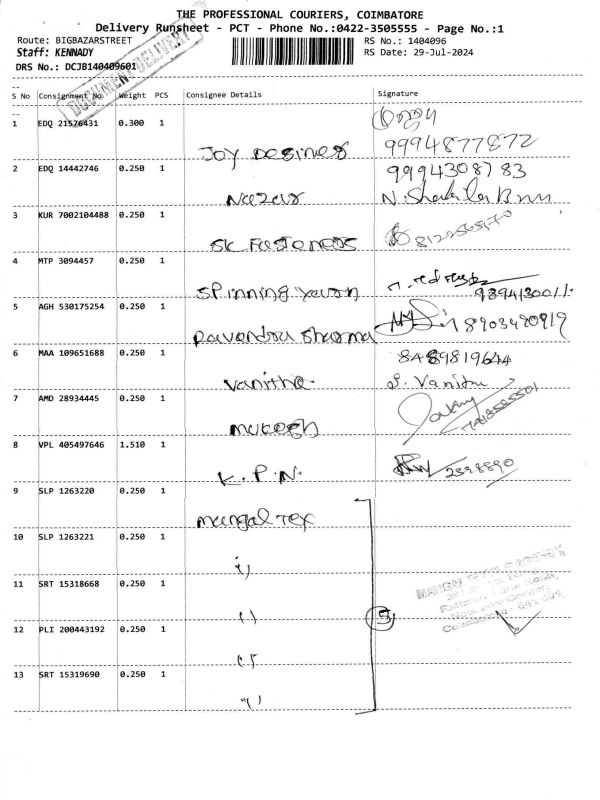 THE PROFESSIONAL COURIERS, COIMBATORE
Delivery Runsheet - PCT - Phone No.:0422-3505555 - Page No.:1
Route: BIGBAZARSTREET RS No.: 1404096
Staff: KENNADY RS Date: 29-Jul-2024
DRS No.: DCJB140409601
DOCUMENT DELIVERY
S No Consignment No Weight PCS Consignee Details Signature
1 EDQ 21576431 0.300 1
Joy Desiner 9994877872
2 EDQ 14442746 0.250 1 9994308783
Nazar
3 KUR 7002104488 0.250 1
SK Fasteners
4 MTP 3094457 0.250 1
Spinning Yarn
5 AGH 530175254 0.250 1
Ravendra Sharma 8903480919
6 MAA 109651688 0.250 1 8489819644
Vanitha S. Vanitha
7 AMD 28934445 0.250 1
Mukesh
8 VPL 405497646 1.510 1
K.P.N. 2398890
9 SLP 1263220 0.250 1
Mangal Tex
10 SLP 1263221 0.250 1
"
11 SRT 15318668 0.250 1
"
5
12 PLI 200443192 0.250 1
"
13 SRT 15319690 0.250 1
"